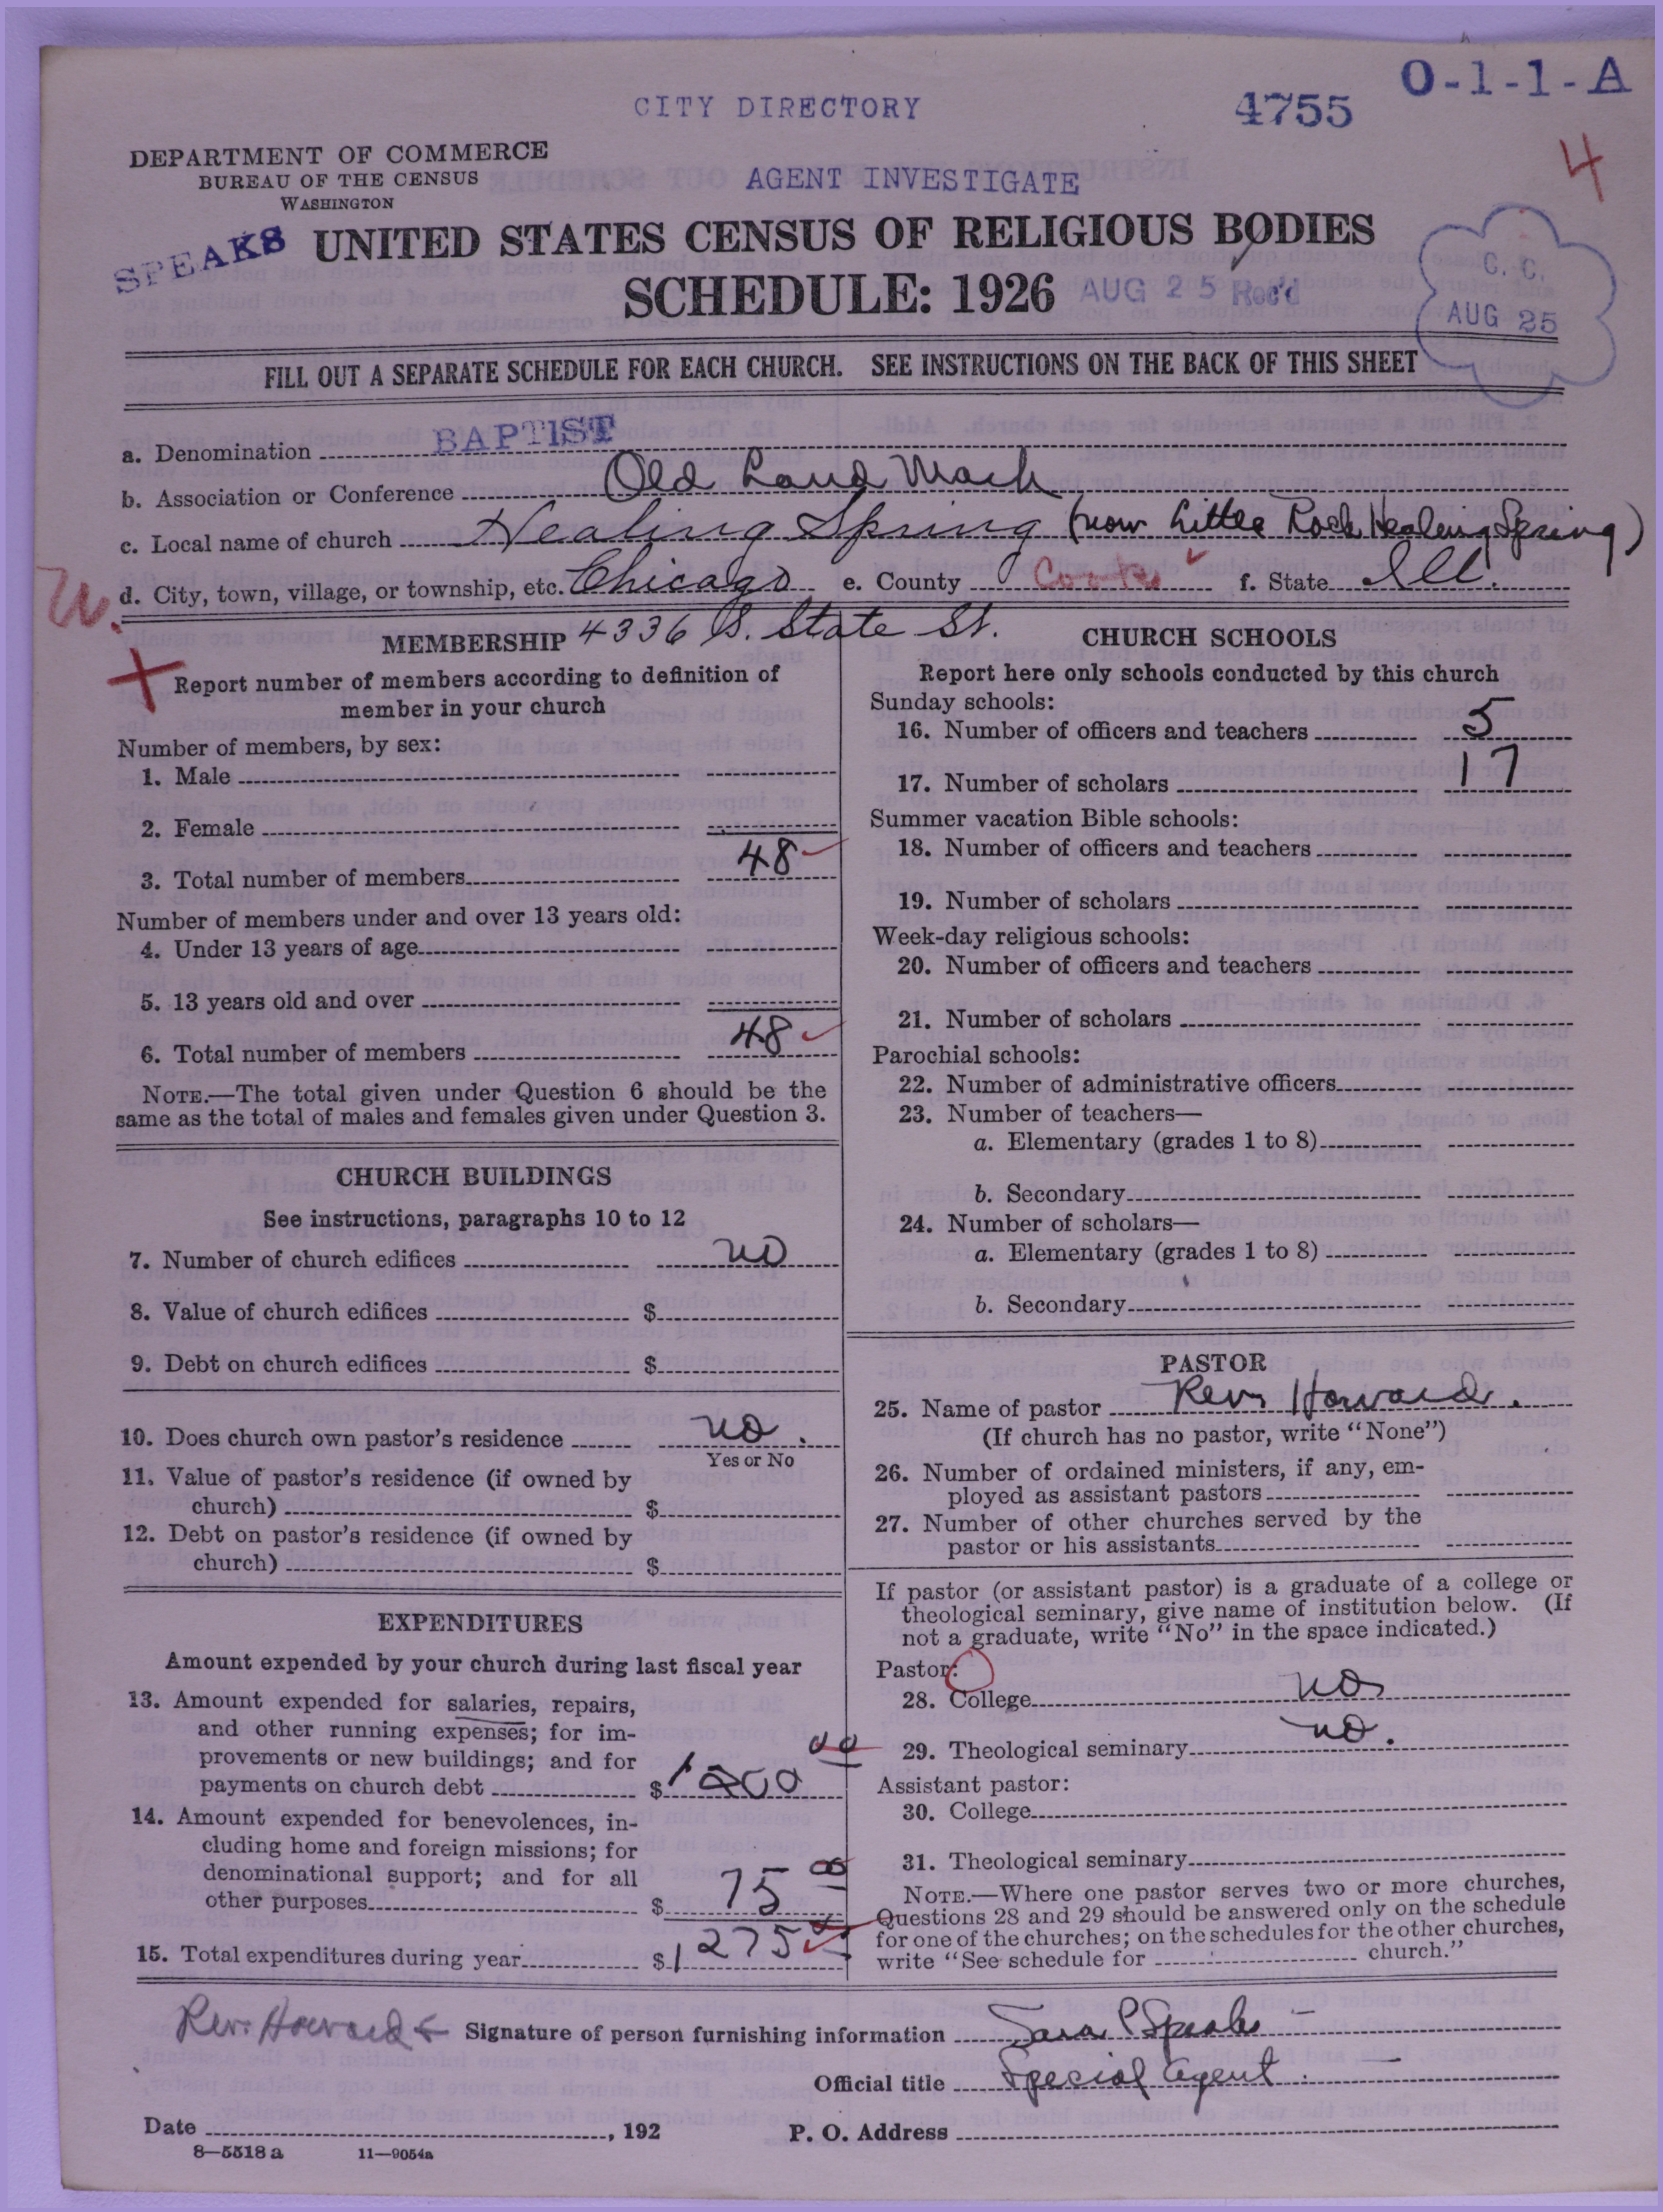 O-1-1-A
CITY DIRECTORY
4755
DEPARTMENT OF COMMERCE
BUREAU OF THE CENSUS
WASHINGTON
AGENT INVESTIGATE
4
SPEAKS
UNITED STATES CENSUS OF RELIGIOUS BODIES
SCHEDULE: 1926
AUG 25 Rec'd
C. C.
AUG 25
FILL OUT A SEPARATE SCHEDULE FOR EACH CHURCH. SEE INSTRUCTIONS ON THE BACK OF THIS SHEET
a. Denomination BAPTIST
b. Association or Conference Old Land Mark
c. Local name of church Healing Spring (now Little Rock Healing Spring)
d. City, town, village, or township, etc. Chicago e. County Cook f. State Ill.
MEMBERSHIP 4336 S. State St.
Report number of members according to definition of
member in your church
Number of members, by sex:
1. Male
2. Female
3. Total number of members 48
Number of members under and over 13 years old:
4. Under 13 years of age
5. 13 years old and over
6. Total number of members 48
NOTE.—The total given under Question 6 should be the
same as the total of males and females given under Question 3.
CHURCH BUILDINGS
See instructions, paragraphs 10 to 12
7. Number of church edifices no
8. Value of church edifices $
9. Debt on church edifices $
10. Does church own pastor's residence no.
Yes or No
11. Value of pastor's residence (if owned by
church) $
12. Debt on pastor's residence (if owned by
church) $
EXPENDITURES
Amount expended by your church during last fiscal year
13. Amount expended for salaries, repairs,
and other running expenses; for im-
provements or new buildings; and for
payments on church debt $ 1200 00
14. Amount expended for benevolences, in-
cluding home and foreign missions; for
denominational support; and for all
other purposes $ 75 00
15. Total expenditures during year $ 1275
CHURCH SCHOOLS
Report here only schools conducted by this church
Sunday schools:
16. Number of officers and teachers 5
17. Number of scholars 17
Summer vacation Bible schools:
18. Number of officers and teachers
19. Number of scholars
Week-day religious schools:
20. Number of officers and teachers
21. Number of scholars
Parochial schools:
22. Number of administrative officers
23. Number of teachers—
a. Elementary (grades 1 to 8)
b. Secondary
24. Number of scholars—
a. Elementary (grades 1 to 8)
b. Secondary
PASTOR
25. Name of pastor Rev. Howard.
(If church has no pastor, write "None")
26. Number of ordained ministers, if any, em-
ployed as assistant pastors
27. Number of other churches served by the
pastor or his assistants
If pastor (or assistant pastor) is a graduate of a college or
theological seminary, give name of institution below. (If
not a graduate, write "No" in the space indicated.)
Pastor:
28. College no
29. Theological seminary no.
Assistant pastor:
30. College
31. Theological seminary
NOTE.—Where one pastor serves two or more churches,
Questions 28 and 29 should be answered only on the schedule
for one of the churches; on the schedules for the other churches,
write "See schedule for church."
Rev. Howard Signature of person furnishing information Sara P Speaks
Official title Special Agent
Date , 192 P. O. Address
8—5518 a 11—9054a